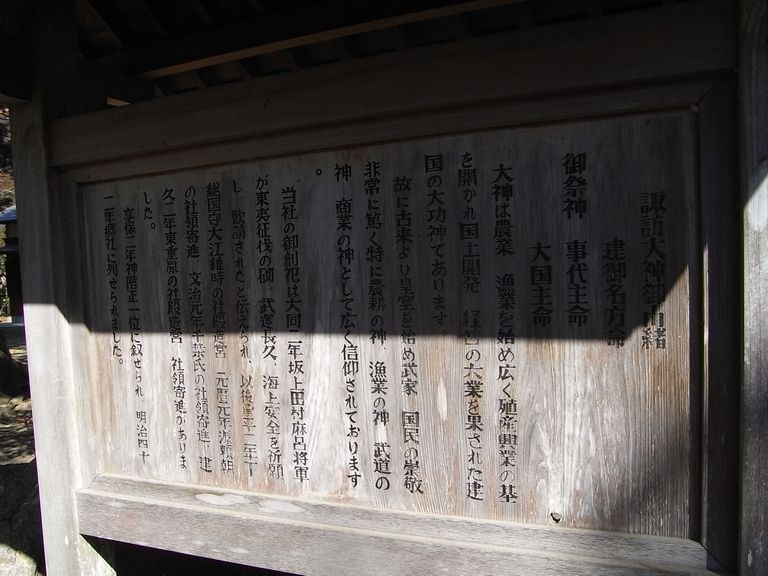 諏訪大神御由緒
建御名方命
御祭神　事代主命
大国主命
大神は農業　漁業を始め広く殖産興業の基
を開かれ国土開発　経営の大業を果された建
国の大功神であります。
故に古来より皇室を始め武家　国民の崇敬
非常に篤く特に農耕の神　漁業の神　武道の
神　商業の神として広く信仰されております
。
当社の御創祀は大同二年坂上田村麻呂将軍
が東夷征伐の砌　武運長久　海上安全を祈願
し　歓請されたと伝えられ　以後　平二年下
総国守大江維時の社殿造宮　元暦元年源頼朝
の社領寄進　文治元年千葉氏の社領寄進　建
久二年東重胤の社殿造宮　社領寄進がありま
した。
享保二年神階正一位に叙せられ　明治四十
二年郷社に列せられました。